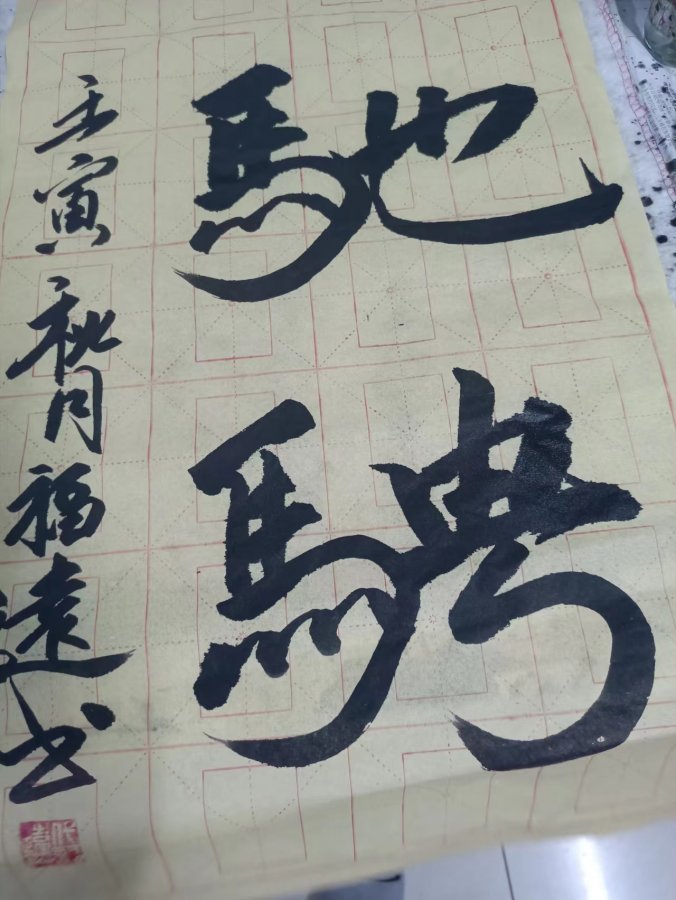 馳騁
壬寅秋月福遠书